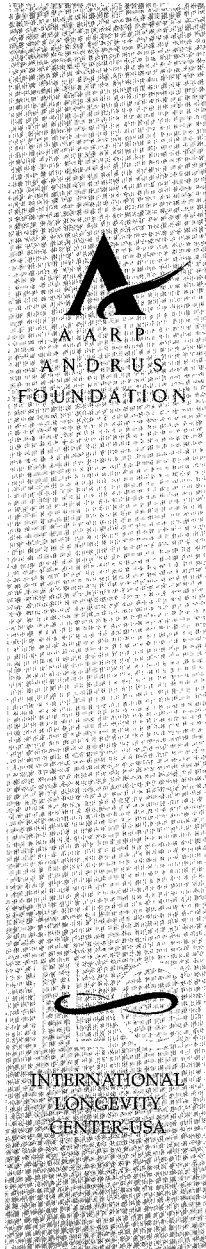 AARP
ANDRUS
FOUNDATION
ILC
INTERNATIONAL
LONGEVITY
CENTER-USA